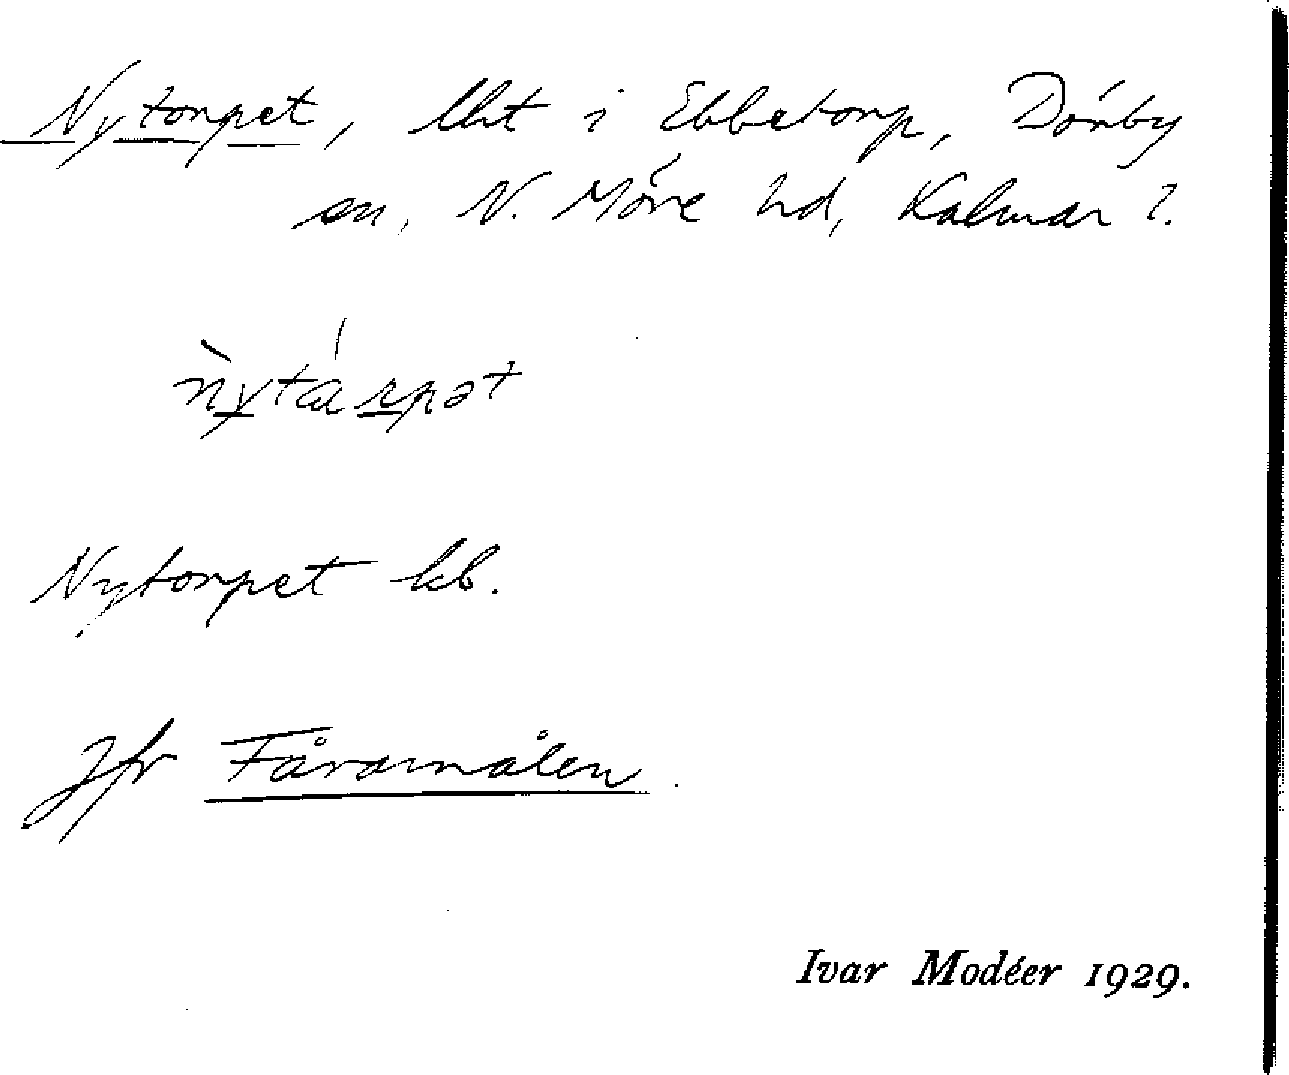 Nytorpet, lht i Ebbetorp, Dörby
sn, N. Möre hd, Kalmar l.
nytárpət
Nytorpet kb.
Jfr Fåramålen.
Ivar Modéer 1929.